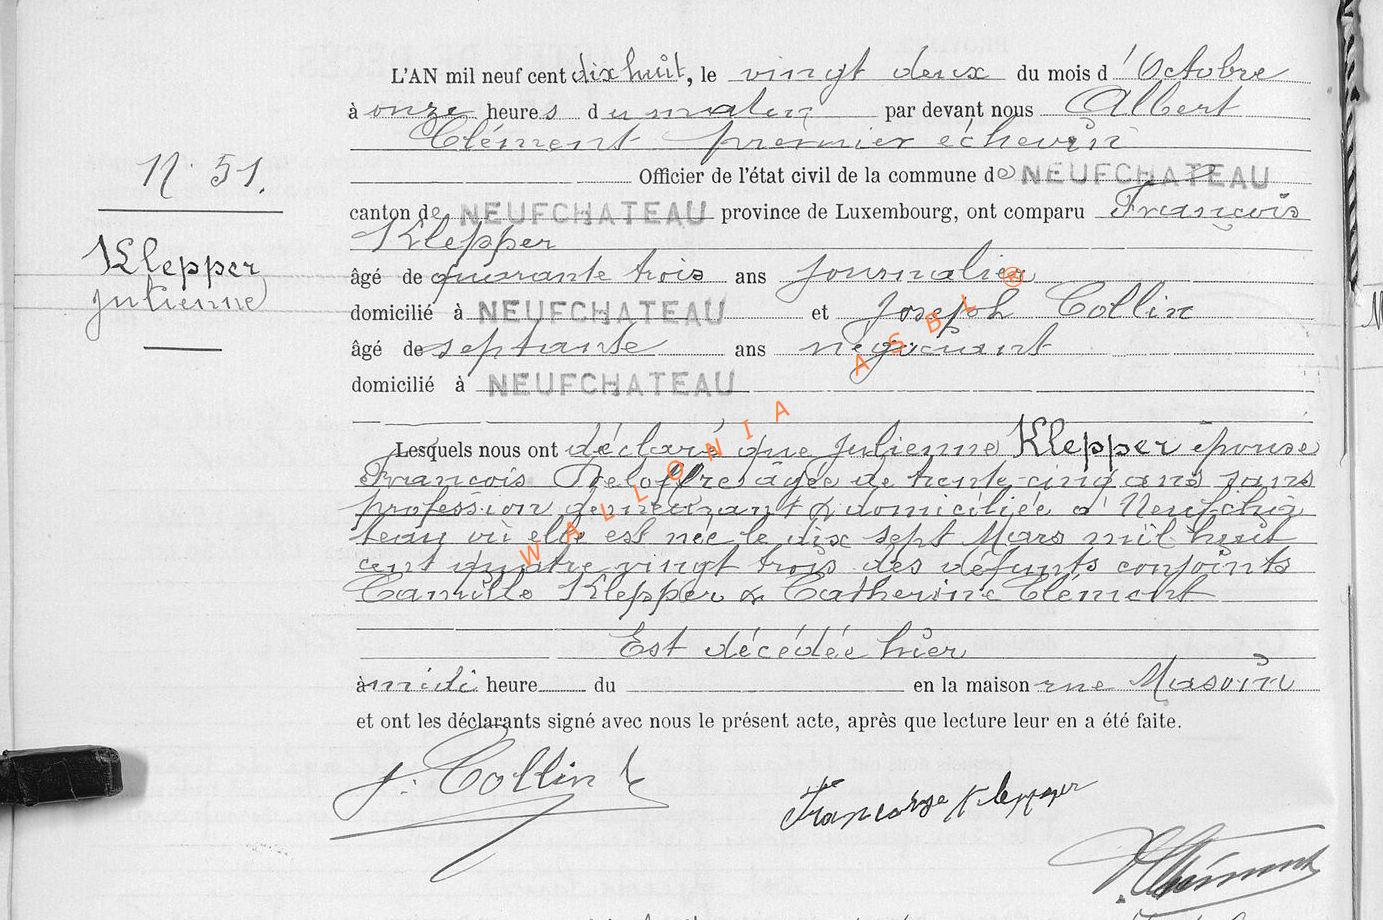 L'AN mil neuf cent dix huit, le vingt deux du mois d'Octobre
à onze heures du matin par devant nous Albert
Clément premier échevin
N. 51.
Officier de l'état civil de la commune de NEUFCHATEAU
canton de NEUFCHATEAU province de Luxembourg, ont comparu François
Klepper
Klepper
Julienne
âgé de quarante trois ans journalier
domicilié à NEUFCHATEAU et Joseph Collin
âgé de septante ans négociant
domicilié à NEUFCHATEAU
WALLONIA ASBL ®
Lesquels nous ont déclaré que Julienne Klepper épouse
François Deloffre âgée de trente-cinq ans sans
profession demeurant & domiciliée à Neufchâ
teau où elle est née le dix sept Mars mil huit
cent quatre vingt trois des défunts conjoints
Camille Klepper & Catherine Clément
Est décédée hier
à midi heure du en la maison rue Masoin
et ont les déclarants signé avec nous le présent acte, après que lecture leur en a été faite.
J. Collin
Klepper